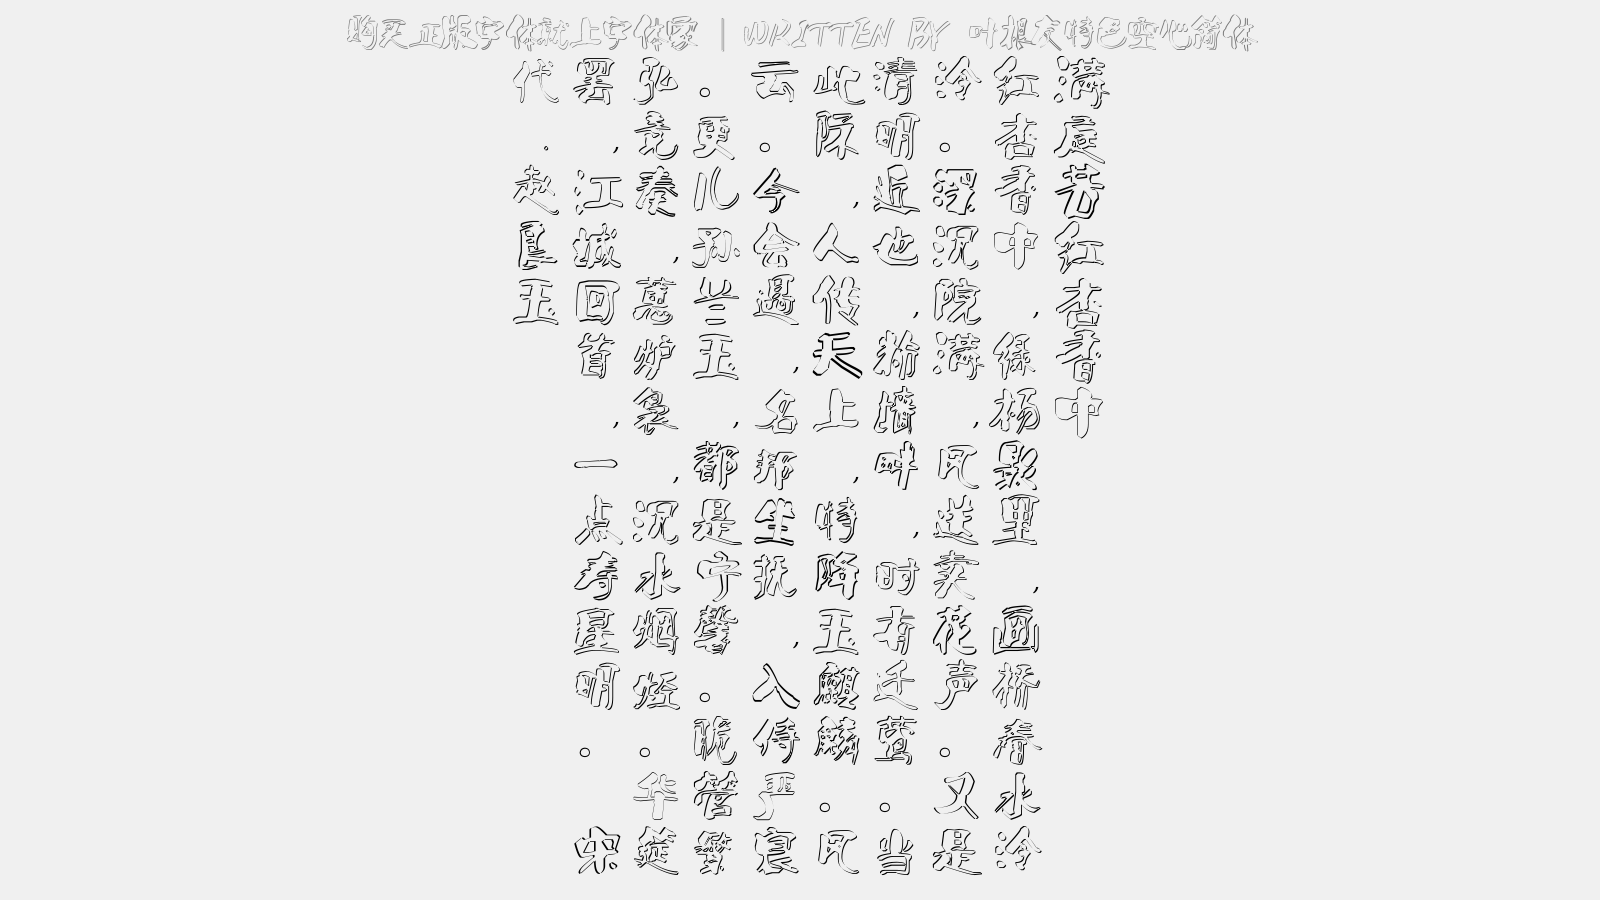 购买正版字体就上字体家 | WRITTEN BY 叶根友特色空心简体
满庭芳红杏香中
红杏香中,绿杨影里,画桥春水泠
泠。深沉院满,风送卖花声。又是
清明近也,粉墙畔,时有迁莺。当
此际,人传天上,特降玉麒麟。风
云。今会遇,名邦坐抚,入侍严宸
。更儿孙兰玉,都是宁馨。脆管繁
弘竞奏,蕙炉袅,沉水烟烃。华筵
罢,江城回首,一点寿星明。 宋
代.赵良玉